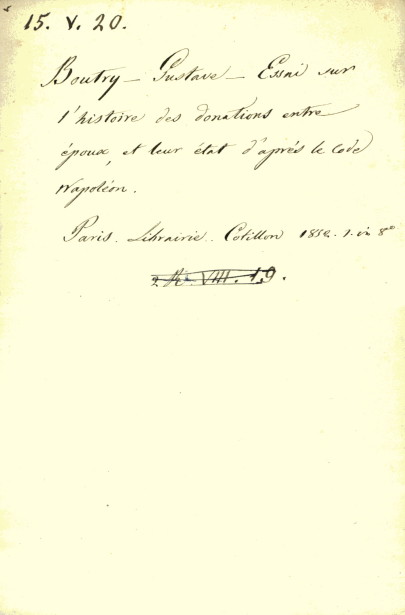 15. V. 20.
Boutry – Gustave – Essai sur
l'histoire des donations entre
époux, et leur état d'après le Code
Napoléon.
Paris. Librairie. Cotillon 1852. 1. in 8°
VIII. 19.